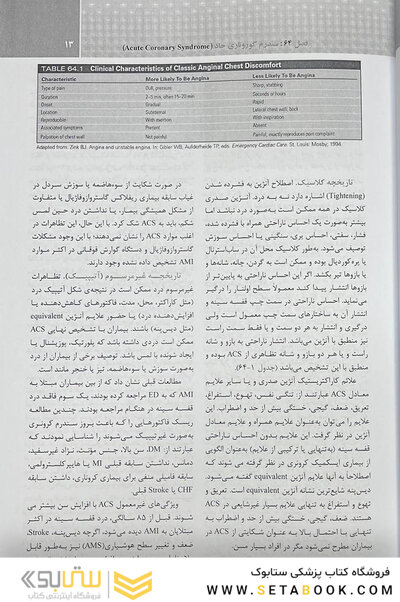 فصل ۶۴: سندرم کوروناری حاد (Acute Coronary Syndrome)
۱۳
TABLE 64.1 Clinical Characteristics of Classic Anginal Chest Discomfort
Characteristic More Likely To Be Angina Less Likely To Be Angina
Type of pain Dull, pressure Sharp, stabbing
Duration 2–5 min, often 15–20 min Seconds or hours
Onset Gradual Rapid
Location Substernal Lateral chest wall, back
Reproducible With exertion With inspiration
Associated symptoms Present Absent
Palpation of chest wall Not painful Painful, exactly reproduces pain complaint
Adapted from: Zink BJ. Angina and unstable angina. In: Gibler WB, Aufderheide TP, eds. Emergency Cardiac Care. St. Louis: Mosby; 1994.
تاریخچه کلاسیک. اصطلاح آنژین به فشرده شدن
(Tightening) اشاره دارد نه به درد. آنژین صدری
کلاسیک در همه ممکن است به‌صورت درد نباشد اما
بیشتر به‌صورت یک احساس ناراحتی همراه با فشرده شده،
فشار، سفتی، احساس پری، سنگینی یا احساس سوزش
توصیف می‌شود. به‌طور کلاسیک محل آن در ساب‌استرنال
یا پره‌کوردیال بوده و ممکن است به گردن، چانه، شانه‌ها و
یا بازوها تیر بکشد. اگر این احساس ناراحتی به پایین‌تر از
بازوها انتشار پیدا کند معمولا سطح اولنار را درگیر
می‌نماید. احساس ناراحتی در سمت چپ قفسه سینه و
انتشار آن به ساختارهای سمت چپ معمول است ولی
درگیری و انتشار به هر دو سمت و یا فقط سمت راست
نیز منطبق با آنژین می‌باشد. انتشار ناراحتی به بازو و شانه
راست و یا هر دو بازو و شانه تظاهری از ACS بوده و
منطبق با این تشخیص می‌باشد (جدول ۱-۶۴)
علائم کاراکتریستیک آنژین صدری و یا سایر علایم
معادل ACS عبارتند از: تنگی نفس، تهوع، استفراغ،
تعریق، ضعف، گیجی، خستگی بیش از حد و اضطراب. این
علایم را می‌توان به‌عنوان علایم همراه و علایم معادل
آنژین در نظر گرفت. این علایم بدون احساس ناراحتی
قفسه سینه (به‌تنهایی یا ترکیبی از علایم) به‌عنوان الگویی
از بیماری ایسکمیک کرونری در نظر گرفته می شوند که
اصطلاحاً به آنها علایم آنژین equivalent گفته می‌شود.
دیس‌پنه شایع‌ترین نشانه آنژین equivalent است. تعریق و
تهوع و استفراغ به تنهایی علایم بسیار غیرشایعی در ACS
هستند. ضعف، گیجی، خستگی بیش از حد و اضطراب به
تنهایی با احتمال بالا به عنوان شکایتی از ACS در
بیماران مطرح نمی‌شود مگر در افراد بسیار مسن.
در صورت شکایت از سوءهاضمه یا سوزش سردل در
غیاب سابقه بیماری ریفلاکس گاستروازوفاژیال یا متفاوت
از مشکل همیشگی بیمار، یا نداشتن درد حین لمس
شکم، باید به ACS شک کرد. با این حال، این تظاهرات در
اغلب موارد ACS را نشان نمی‌دهند؛ با این وجود مشکلات
گاستروازوفاژیال و دستگاه گوارش فوقانی در اکثر موارد
AMI تشخیص داده نشده وجود دارند.
تاریخچه غیرمرسوم (آتیپیک). تظاهرات
غیرمرسوم درد ممکن است در نتیجه‌ی شکل آتیپیک درد
(مثل کاراکتر، محل، مدت، فاکتورهای کاهش‌دهنده یا
افزایش‌دهنده درد) یا حضور علایم آنژین equivalent
(مثل دیس‌پنه) باشند. بیماران با تشخیص نهایی ACS
ممکن است دردی داشته باشد که پلورتیک، پوزیشنال یا
ایجاد شونده با لمس باشد. توصیف برخی از بیماران از درد
به‌صورت سوزش یا سوءهاضمه، تیز یا خنجر مانند است.
مطالعات قبلی نشان داد که از بین بیماران مبتلا به
AMI که به ED مراجعه کرده بودند، یک سوم فاقد درد
قفسه سینه در هنگام مراجعه بودند. چندین مطالعه
ریسک فاکتورهایی را که باعث بروز سندرم کرونری
به‌صورت غیرتیپیک می شوند را شناسایی نمودند که
عبارتند از: DM، سن بالا، جنس مؤنث، نژاد غیرسفید،
دمانس، نداشتن سابقه قبلی MI یا هایپرکلسترولمی،
سابقه فامیلی منفی برای بیماری کرونری، داشتن سابقه
CHF یا Stroke قبلی
ویژگی‌های غیرمعمول ACS با افزایش سن بیشتر می
شوند. قبل از ۸۵ سالگی، درد قفسه سینه در اکثر
مبتلایان به AMI دیده می‌شود، اگرچه دیس‌پنه، Stroke،
ضعف و تغییر سطح هوشیاری (AMS) نیز به‌طور قابل
فروشگاه کتاب پزشکی ستابوک
WWW.SETABOOK.COM
ستابوک
فروشگاه اینترنتی کتاب